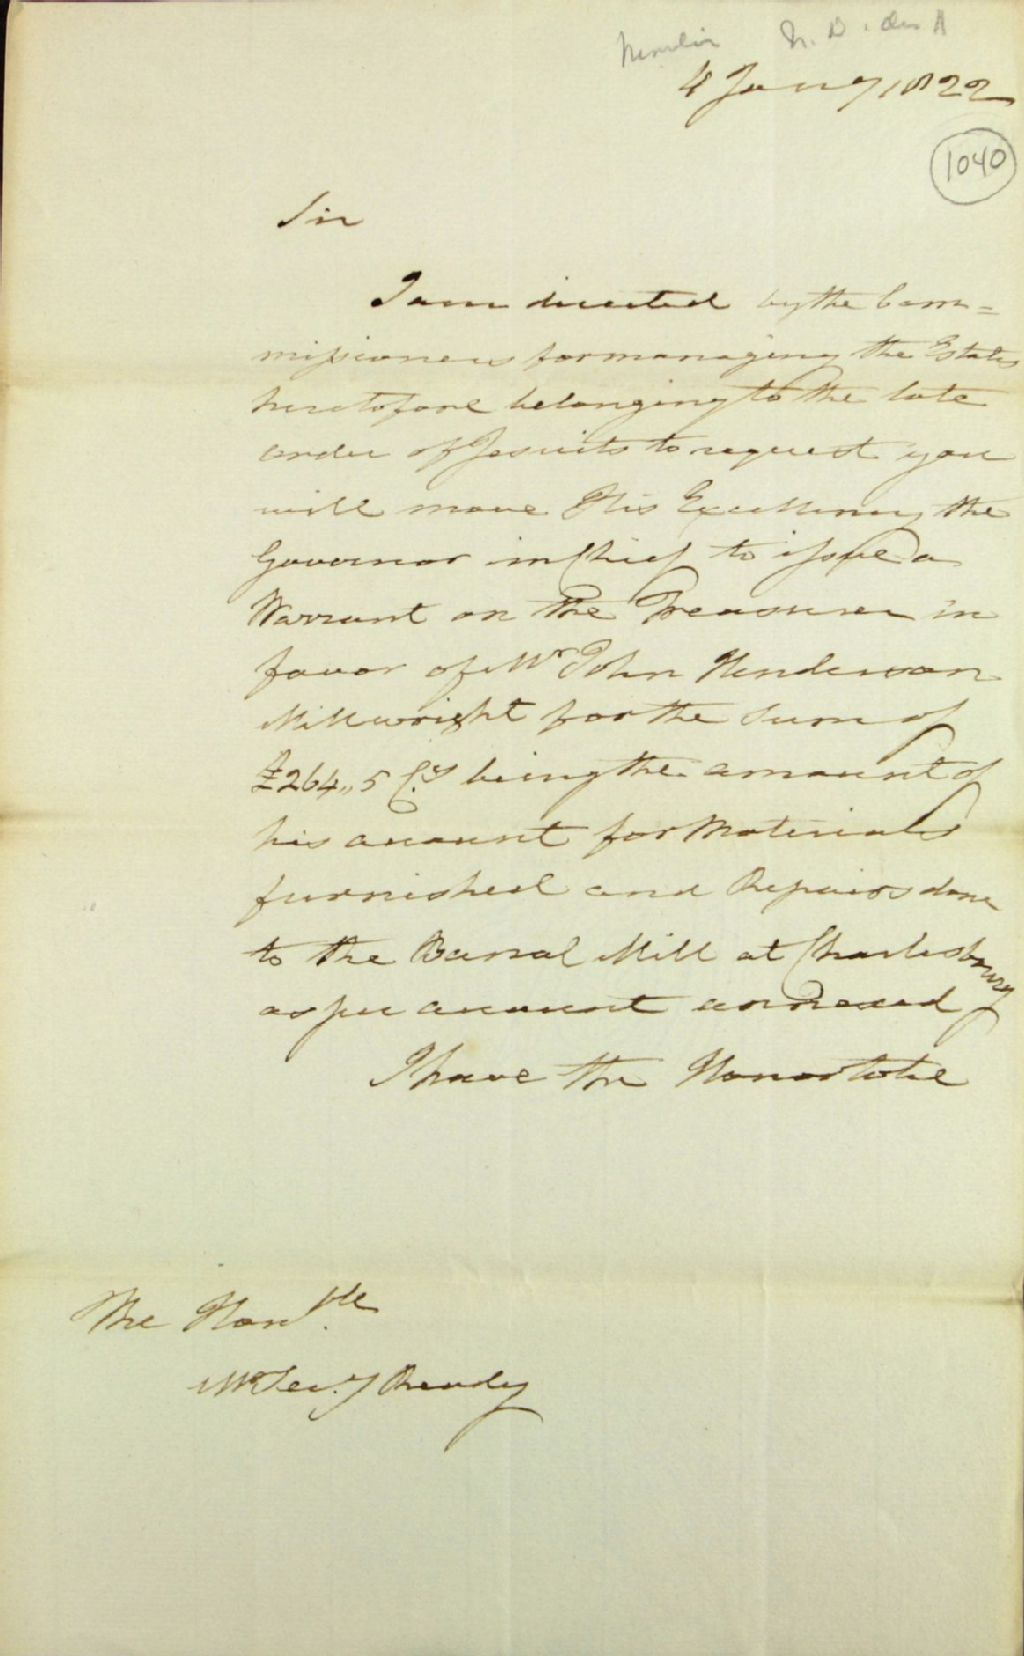 N. D. des A
4 Jany 1822
1040
Sir
I am directed by the Com=
missioners for managing the Estates
heretofore belonging to the late
order of Jesuits to request you
will move His Excellency the
Governor in Chief to issue a
Warrant on the Treasurer in
favor of Mr John Henderson
Millwright for the Sum of
£264,, 5 Cy being the amount of
his account for Materials
furnished and Repairs done
to the Banal Mill at Charlesbourg
as per account annexed
I have the Honor to be
The Honble
Mr Secy Ready